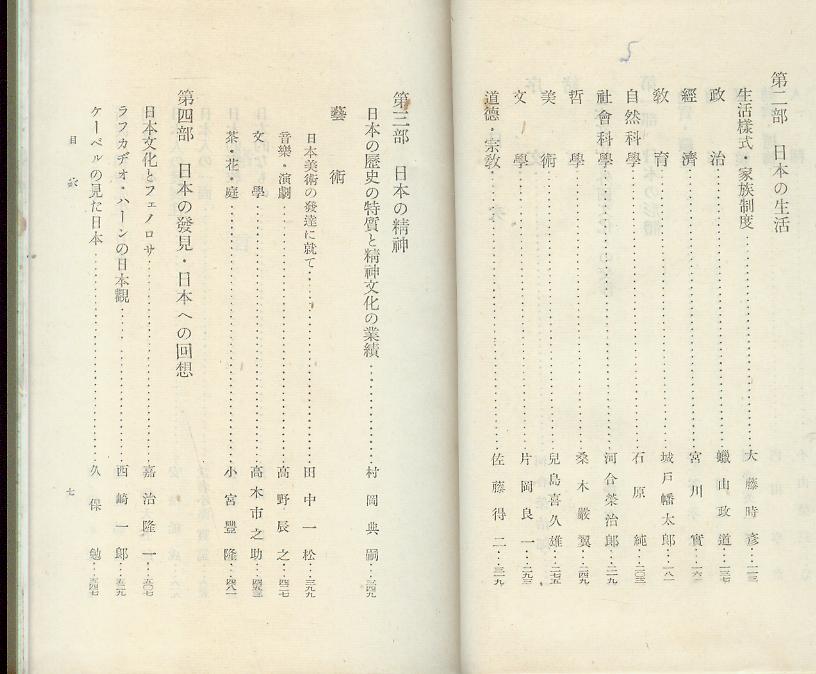 第二部　日本の生活
生活樣式・家族制度……大藤時彦…一一三
政治……蠟山政道…一三七
經濟……宮川實…一六三
敎育……城戶幡太郎…一八一
自然科學……石原純…二〇三
社會科學……河合榮治郎…二一九
哲學……桑木嚴翼…二四九
美術……兒島喜久雄…二七五
文學……片岡良一…二九三
道德・宗敎……佐藤得二…三一九
第三部　日本の精神
日本の歷史の特質と精神文化の業績……村岡典嗣…三四九
藝術
日本美術の發達に就て……田中一松…三九九
音樂・演劇……高野辰之…四二七
文學……高木市之助…四五三
茶・花・庭……小宮豐隆…四八一
第四部　日本の發見・日本への回想
日本文化とフェノロサ……嘉治隆一…五〇七
ラフカヂオ・ハーンの日本觀……西崎一郎…五二九
ケーベルの見た日本……久保勉…五四七
目次
七